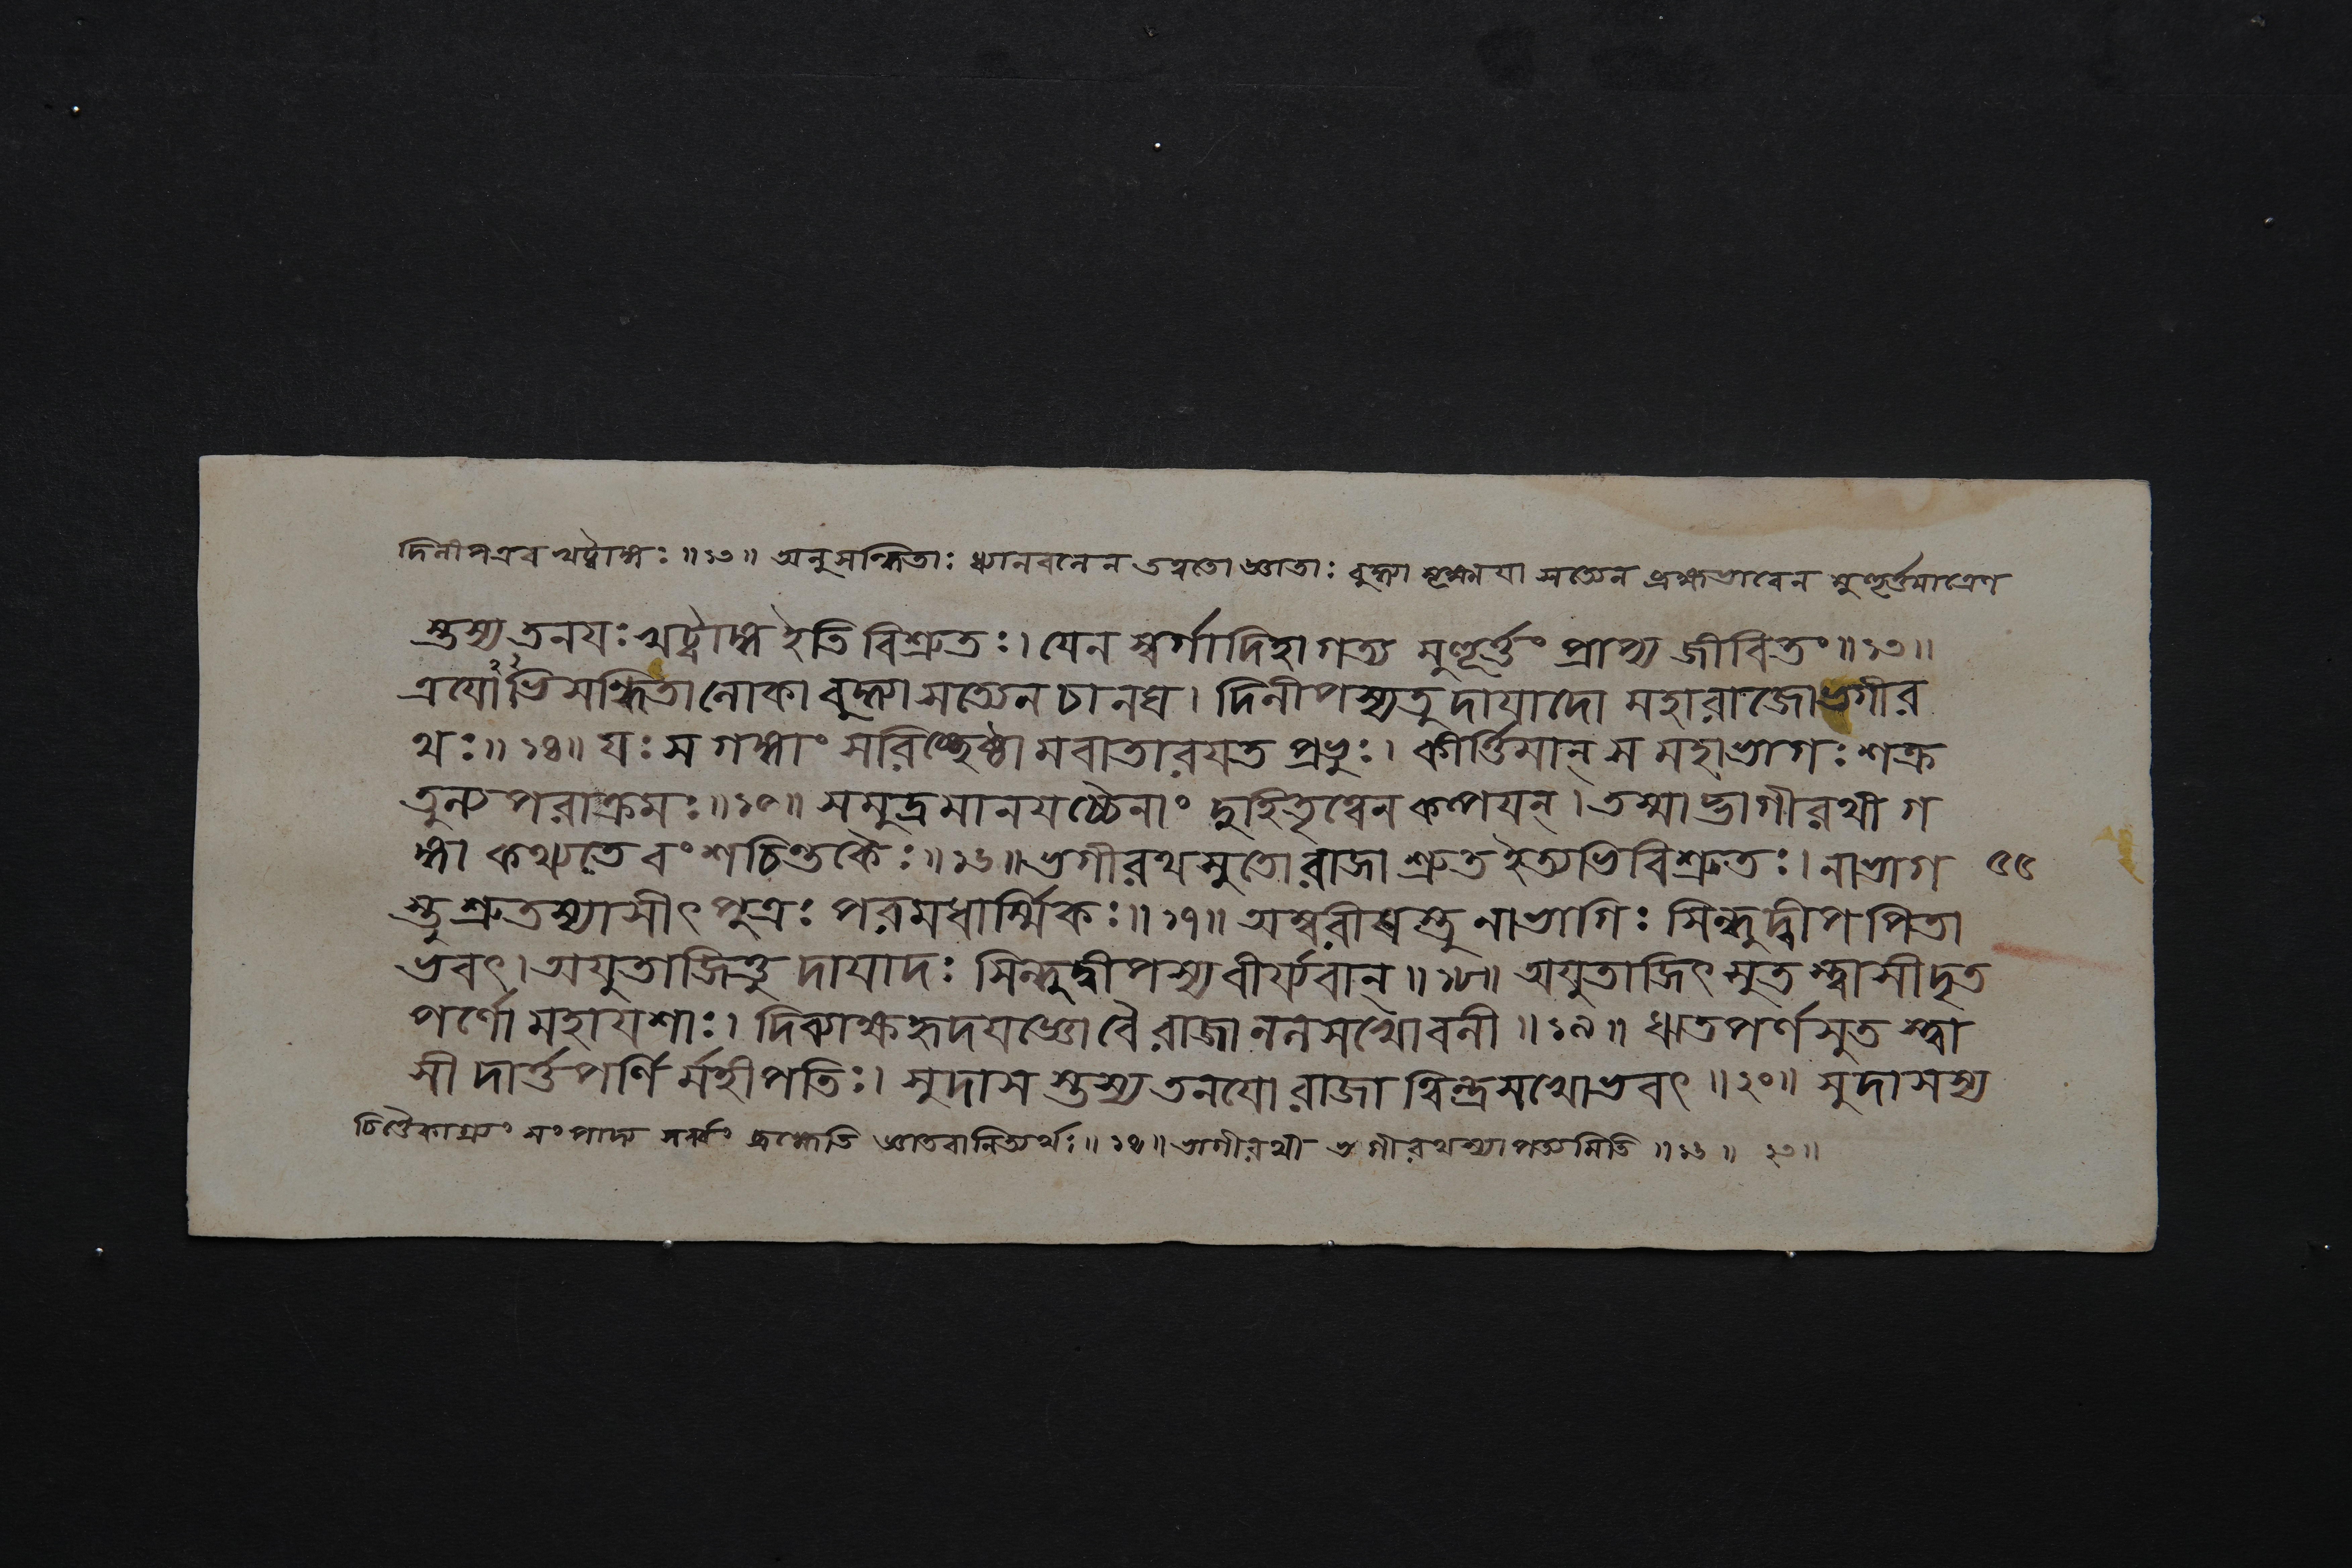 দিলীপএব খট্বাঙ্গঃ ॥১৩॥ অনুসন্ধিতাঃ ধ্যানবলেন তত্বতো জ্ঞাতাঃ বুদ্ধ্যা সূক্ষ্মযা সত্যেন ব্রহ্মভাবেন মুহূর্ত্তমাত্রেণ
স্তস্য তনযঃ খট্বাঙ্গ ইতি বিশ্রুতঃ। যেন স্বর্গাদিহাগত্য মুহূর্ত্তং প্রাপ্য জীবিতং॥১৩॥
ত্রযোঽভিসন্ধিতা লোকা বুদ্ধ্যা সত্যেন চানঘ। দিলীপস্য তু দাযাদো মহারাজো ভগীর
থঃ॥১৪॥ যঃ স গঙ্গাং সরিচ্ছ্রেষ্ঠামবাতারযত প্রভুঃ। কীর্ত্তিমান্ স মহাভাগঃ শক্র
তুল্যপরাক্রমঃ॥১৫॥ সমুদ্রমানযচ্চৈনাং দুহিতৃত্বেন কল্পযন্। তস্মাদ্ভাগীরথী গ
ঙ্গা কথ্যতে বংশচিন্তকৈঃ॥১৬॥ ভগীরথসুতো রাজা শ্রুত ইত্যভিবিশ্রুতঃ। নাভাগ ৫৫
স্তু শ্রুতস্যাসীৎ পুত্রঃ পরমধার্ম্মিকঃ॥১৭॥ অম্বরীষস্তু নাভাগিঃ সিন্ধুদ্বীপপিতা
ভবৎ। অযুতাজিত্তু দাযাদঃ সিন্ধুদ্বীপস্য বীর্য্যবান্॥১৮॥ অযুতাজিৎ সুতস্ত্বাসীদৃত
পর্ণো মহাযশাঃ। দিব্যাক্ষহৃদযজ্ঞো বৈ রাজা নলসখো বলী॥১৯॥ ঋতপর্ণসুতস্ত্বা
সীদার্ত্তপর্ণির্মহীপতিঃ। সুদাসস্তস্য তনযো রাজা ত্বিন্দ্রসখোভবৎ॥২০॥ সুদাসস্য
চিত্তৈকাগ্র্যং সংপাদ্য সর্ব্বং ব্রহ্মেতি জ্ঞাতবানিত্যর্থঃ॥১৪॥ ভাগীরথী ভগীরথস্যাপত্যমিতি॥১৬॥ ২০॥